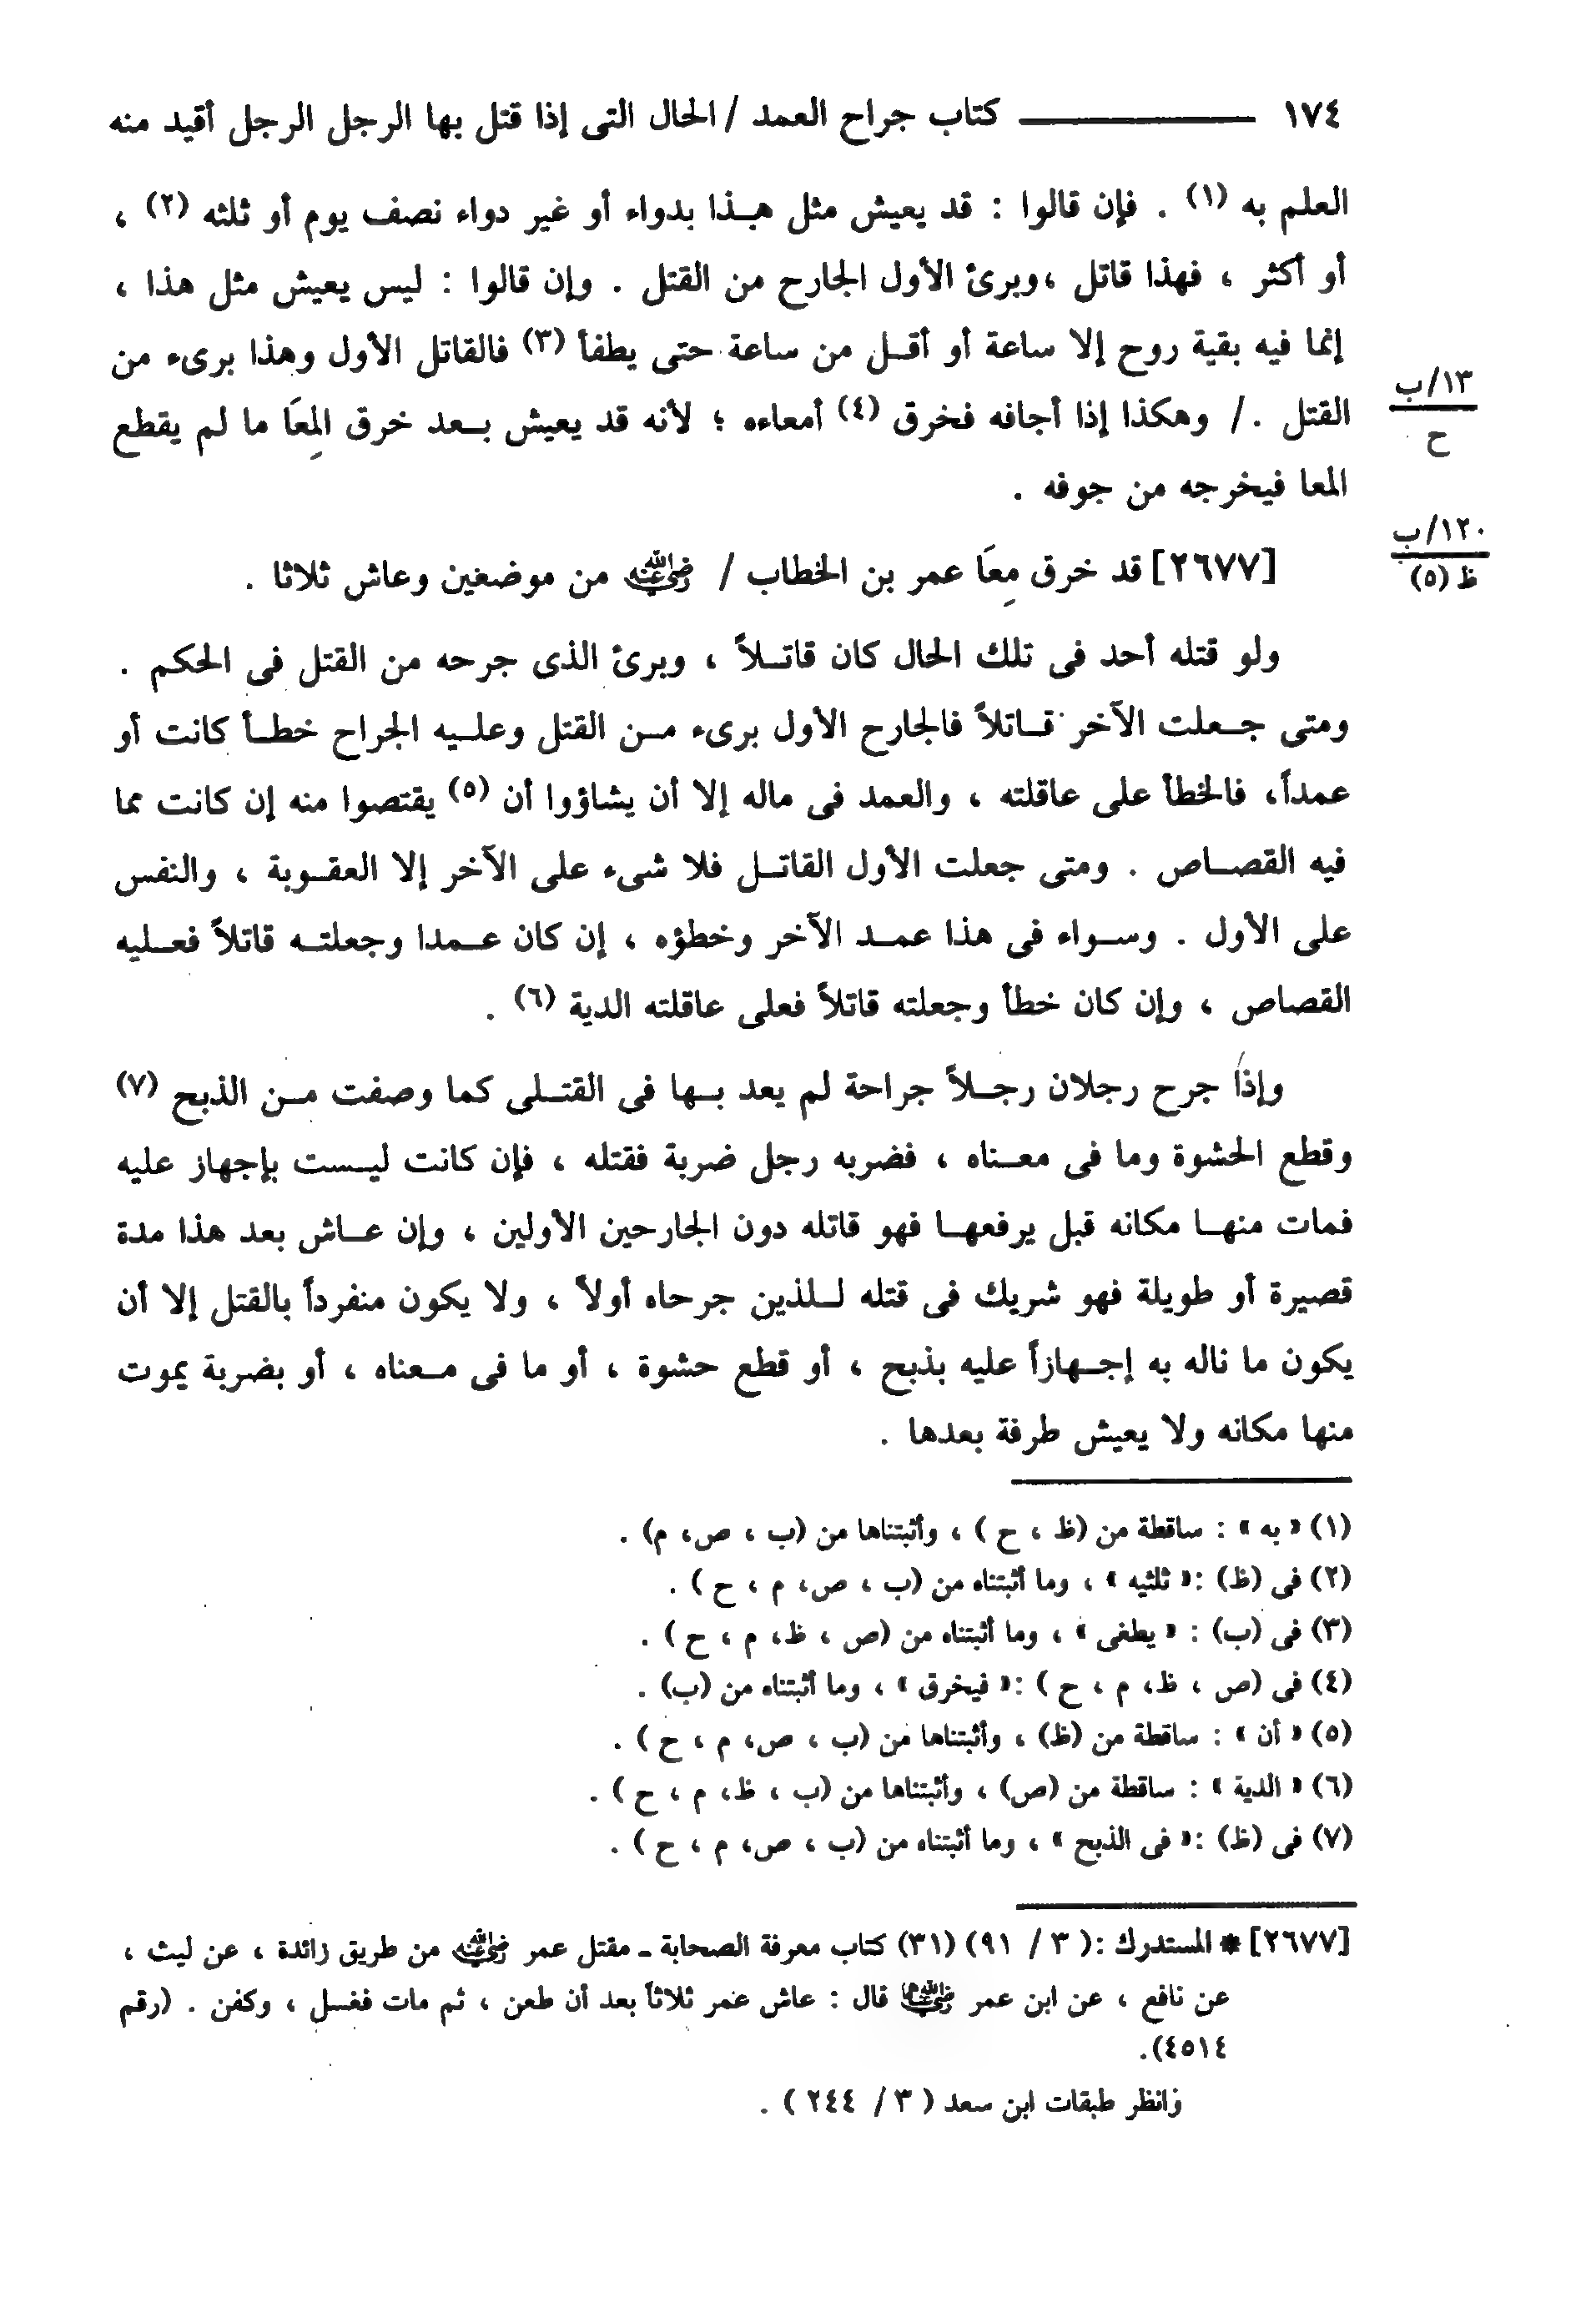 ١٧٤ ــــــــ كتاب جراح العمد / الحال التى إذا قتل بها الرجل الرجل أقيد منه
العلم به (١) . فإن قالوا : قد يعيش مثل هـذا بدواء أو غير دواء نصف يوم أو ثلثه (٢) ،
أو أكثر ، فهذا قاتل ،وبرئ الأول الجارح من القتل . وإن قالوا : ليس يعيش مثل هذا ،
إنما فيه بقية روح إلا ساعة أو أقـل من ساعة حتى يطفأ (٣) فالقاتل الأول وهذا برىء من
١٣/ب
القتل ./ وهكذا إذا أجافه فخرق (٤) أمعاءه ؛ لأنه قد يعيش بـعد خرق المِعَا ما لم يقطع
ح
المعا فيخرجه من جوفه .
١٢٠/ب
[٢٦٧٧] قد خرق مِعَا عمر بن الخطاب / رضي الله عنه من موضعين وعاش ثلاثا .
ظ (٥)
ولو قتله أحد فى تلك الحال كان قاتـلاً ، وبرئ الذى جرحه من القتل فى الحكم .
ومتى جـعلت الآخر قـاتلاً فالجارح الأول برىء مـن القتل وعلـيه الجراح خطـأ كانت أو
عمداً، فالخطأ على عاقلته ، والعمد فى ماله إلا أن يشاؤوا أن (٥) يقتصوا منه إن كانت مما
فيه القصـاص . ومتى جعلت الأول القاتـل فلا شىء على الآخر إلا العقـوبة ، والنفس
على الأول . وسـواء فى هذا عمـد الآخر وخطؤه ، إن كان عـمدا وجعلتـه قاتلاً فعـليه
القصاص ، وإن كان خطأ وجعلته قاتلاً فعلى عاقلته الدية (٦) .
وإذا جرح رجلان رجـلاً جراحة لم يعد بـها فى القتـلى كما وصفت مـن الذبح (٧)
وقطع الحشوة وما فى معـناه ، فضربه رجل ضربة فقتله ، فإن كانت ليـست بإجهاز عليه
فمات منهـا مكانه قبل يرفعهـا فهو قاتله دون الجارحين الأولين ، وإن عـاش بعد هذا مدة
قصيرة أو طويلة فهو شريك فى قتله لـلذين جرحاه أولاً ، ولا يكون منفرداً بالقتل إلا أن
يكون ما ناله به إجـهازاً عليه بذبح ، أو قطع حشوة ، أو ما فى مـعناه ، أو بضربة يموت
منها مكانه ولا يعيش طرفة بعدها .
(١) « به » : ساقطة من (ظ ، ح ) ، وأثبتناها من (ب ، ص، م) .
(٢) فى (ظ) :« ثلثيه » ، وما أثبتناه من (ب ، ص، م ، ح ) .
(٣) فى (ب) : « يطغى » ، وما أثبتناه من (ص ، ظ، م ، ح ) .
(٤) فى (ص ، ظ، م ، ح ) :« فيخرق » ، وما أثبتناه من (ب) .
(٥) « أن » : ساقطة من (ظ) ، وأثبتناها من (ب ، ص، م ، ح ) .
(٦) « الدية » : ساقطة من (ص) ، وأثبتناها من (ب ، ظ، م ، ح ) .
(٧) فى (ظ) :« فى الذبح » ، وما أثبتناه من (ب ، ص، م ، ح ) .
[٢٦٧٧] * المستدرك :( ٣ / ٩١) (٣١) كتاب معرفة الصحابة ـ مقتل عمر رضي الله عنه من طريق زائدة ، عن ليث ،
عن نافع ، عن ابن عمر رضي الله عنهما قال : عاش عمر ثلاثاً بعد أن طعن ، ثم مات فغسل ، وكفن . (رقم
٤٥١٤).
وانظر طبقات ابن سعد ( ٣ / ٢٤٤ ) .